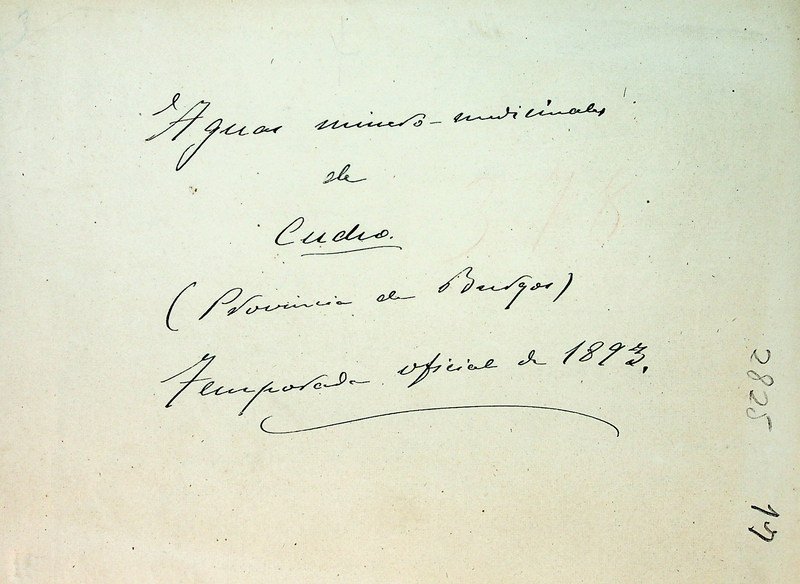 Aguas minero-medicinales
de
Cucho.
(Provincia de Burgos)
Temporada oficial de 1893.
378
2825
17
3